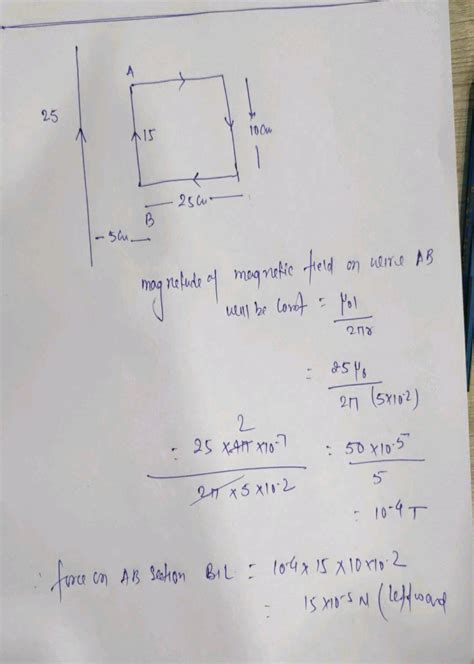 A
25
15
10cm
25cm
B
5cm
magnetude of magnetic field on wire AB
will be const = μ0I
2πr
= 25μ0
2π (5×10-2)
2
= 25 × 4π ×10-7
2π × 5 × 10-2
= 50 × 10-5
5
= 10-4 T
∴ force on AB section BIL = 10-4 × 15 × 10 × 10-2
= 15 × 10-5 N (leftward